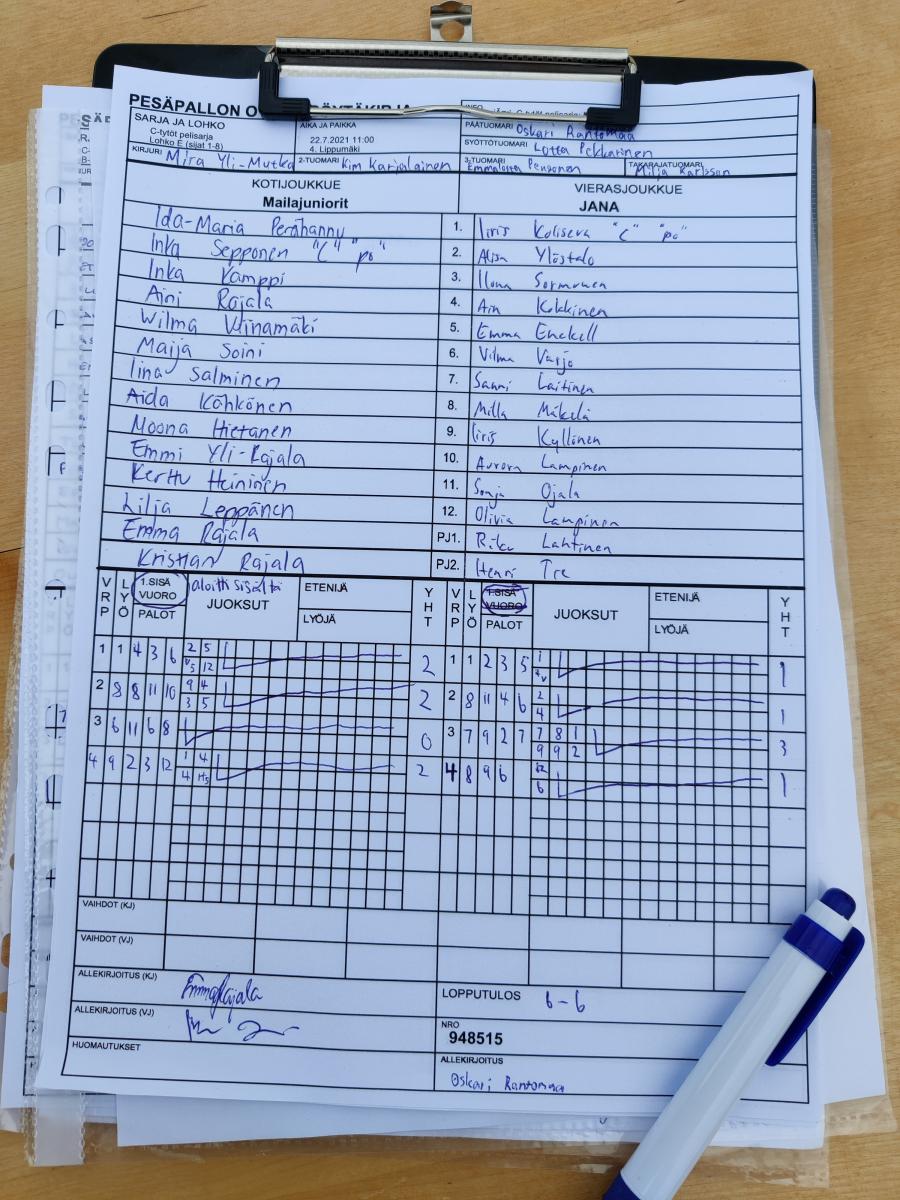 PESÄPALLON
SARJA JA LOHKO
C-tytöt pelisarja
Lohko E (sijat 1-8)
AIKA JA PAIKKA
22.7.2021 11:00
4. Lippumäki
INFO
PÄÄTUOMARI Oskari Rantomaa
SYÖTTÖTUOMARI Lotta Pekkarinen
KIRJURI Mira Yli-Mutka 2-TUOMARI Kim Karjalainen 3-TUOMARI Emmalotta Pensonen TAKARAJATUOMARI Milja Karlsson
KOTIJOUKKUE VIERASJOUKKUE
Mailajuniorit JANA
Ida-Maria Perähanny 1. Iiris Koliseva "C" "po"
Inka Sepponen "C" "po" 2. Alisa Ylöstalo
Inka Kamppi 3. Ilona Sormunen
Aini Rajala 4. Ain Kokkinen
Wilma 5. Emma Enckell
Maija Soini 6. Vilma Varjo
Iina Salminen 7. Sanni Laitinen
Aida Kähkönen 8. Milla Mäkelä
Moona Hietanen 9. Iiris Kyllönen
Emmi Yli-Rajala 10. Aurora Lampinen
Kerttu Heininen 11. Sonja Ojala
Lilja Leppänen 12. Olivia Lampinen
Emma Rajala PJ1. Riku Lahtinen
Kristian Rajala PJ2. Henri
VRP LYÖ 1.SISÄ VUORO PALOT aloitti sisältä JUOKSUT ETENIJÄ LYÖJÄ YHT VRP LYÖ 1.SISÄ VUORO PALOT JUOKSUT ETENIJÄ LYÖJÄ YHT
1 1 4 3 6 2 5 2 1 1 2 3 5 1 1
5 12
2 8 8 11 10 9 4 2 2 8 11 4 6 2 1
3 5 4
3 6 11 6 8 0 3 7 9 2 7 7 8 1 3
9 9 2
4 9 2 3 12 1 4 2 4 8 9 6 12 1
4 6
VAIHDOT (KJ)
VAIHDOT (VJ)
ALLEKIRJOITUS (KJ) Emma Rajala LOPPUTULOS 6-6
ALLEKIRJOITUS (VJ) NRO
948515
HUOMAUTUKSET ALLEKIRJOITUS
Oskari Rantomaa